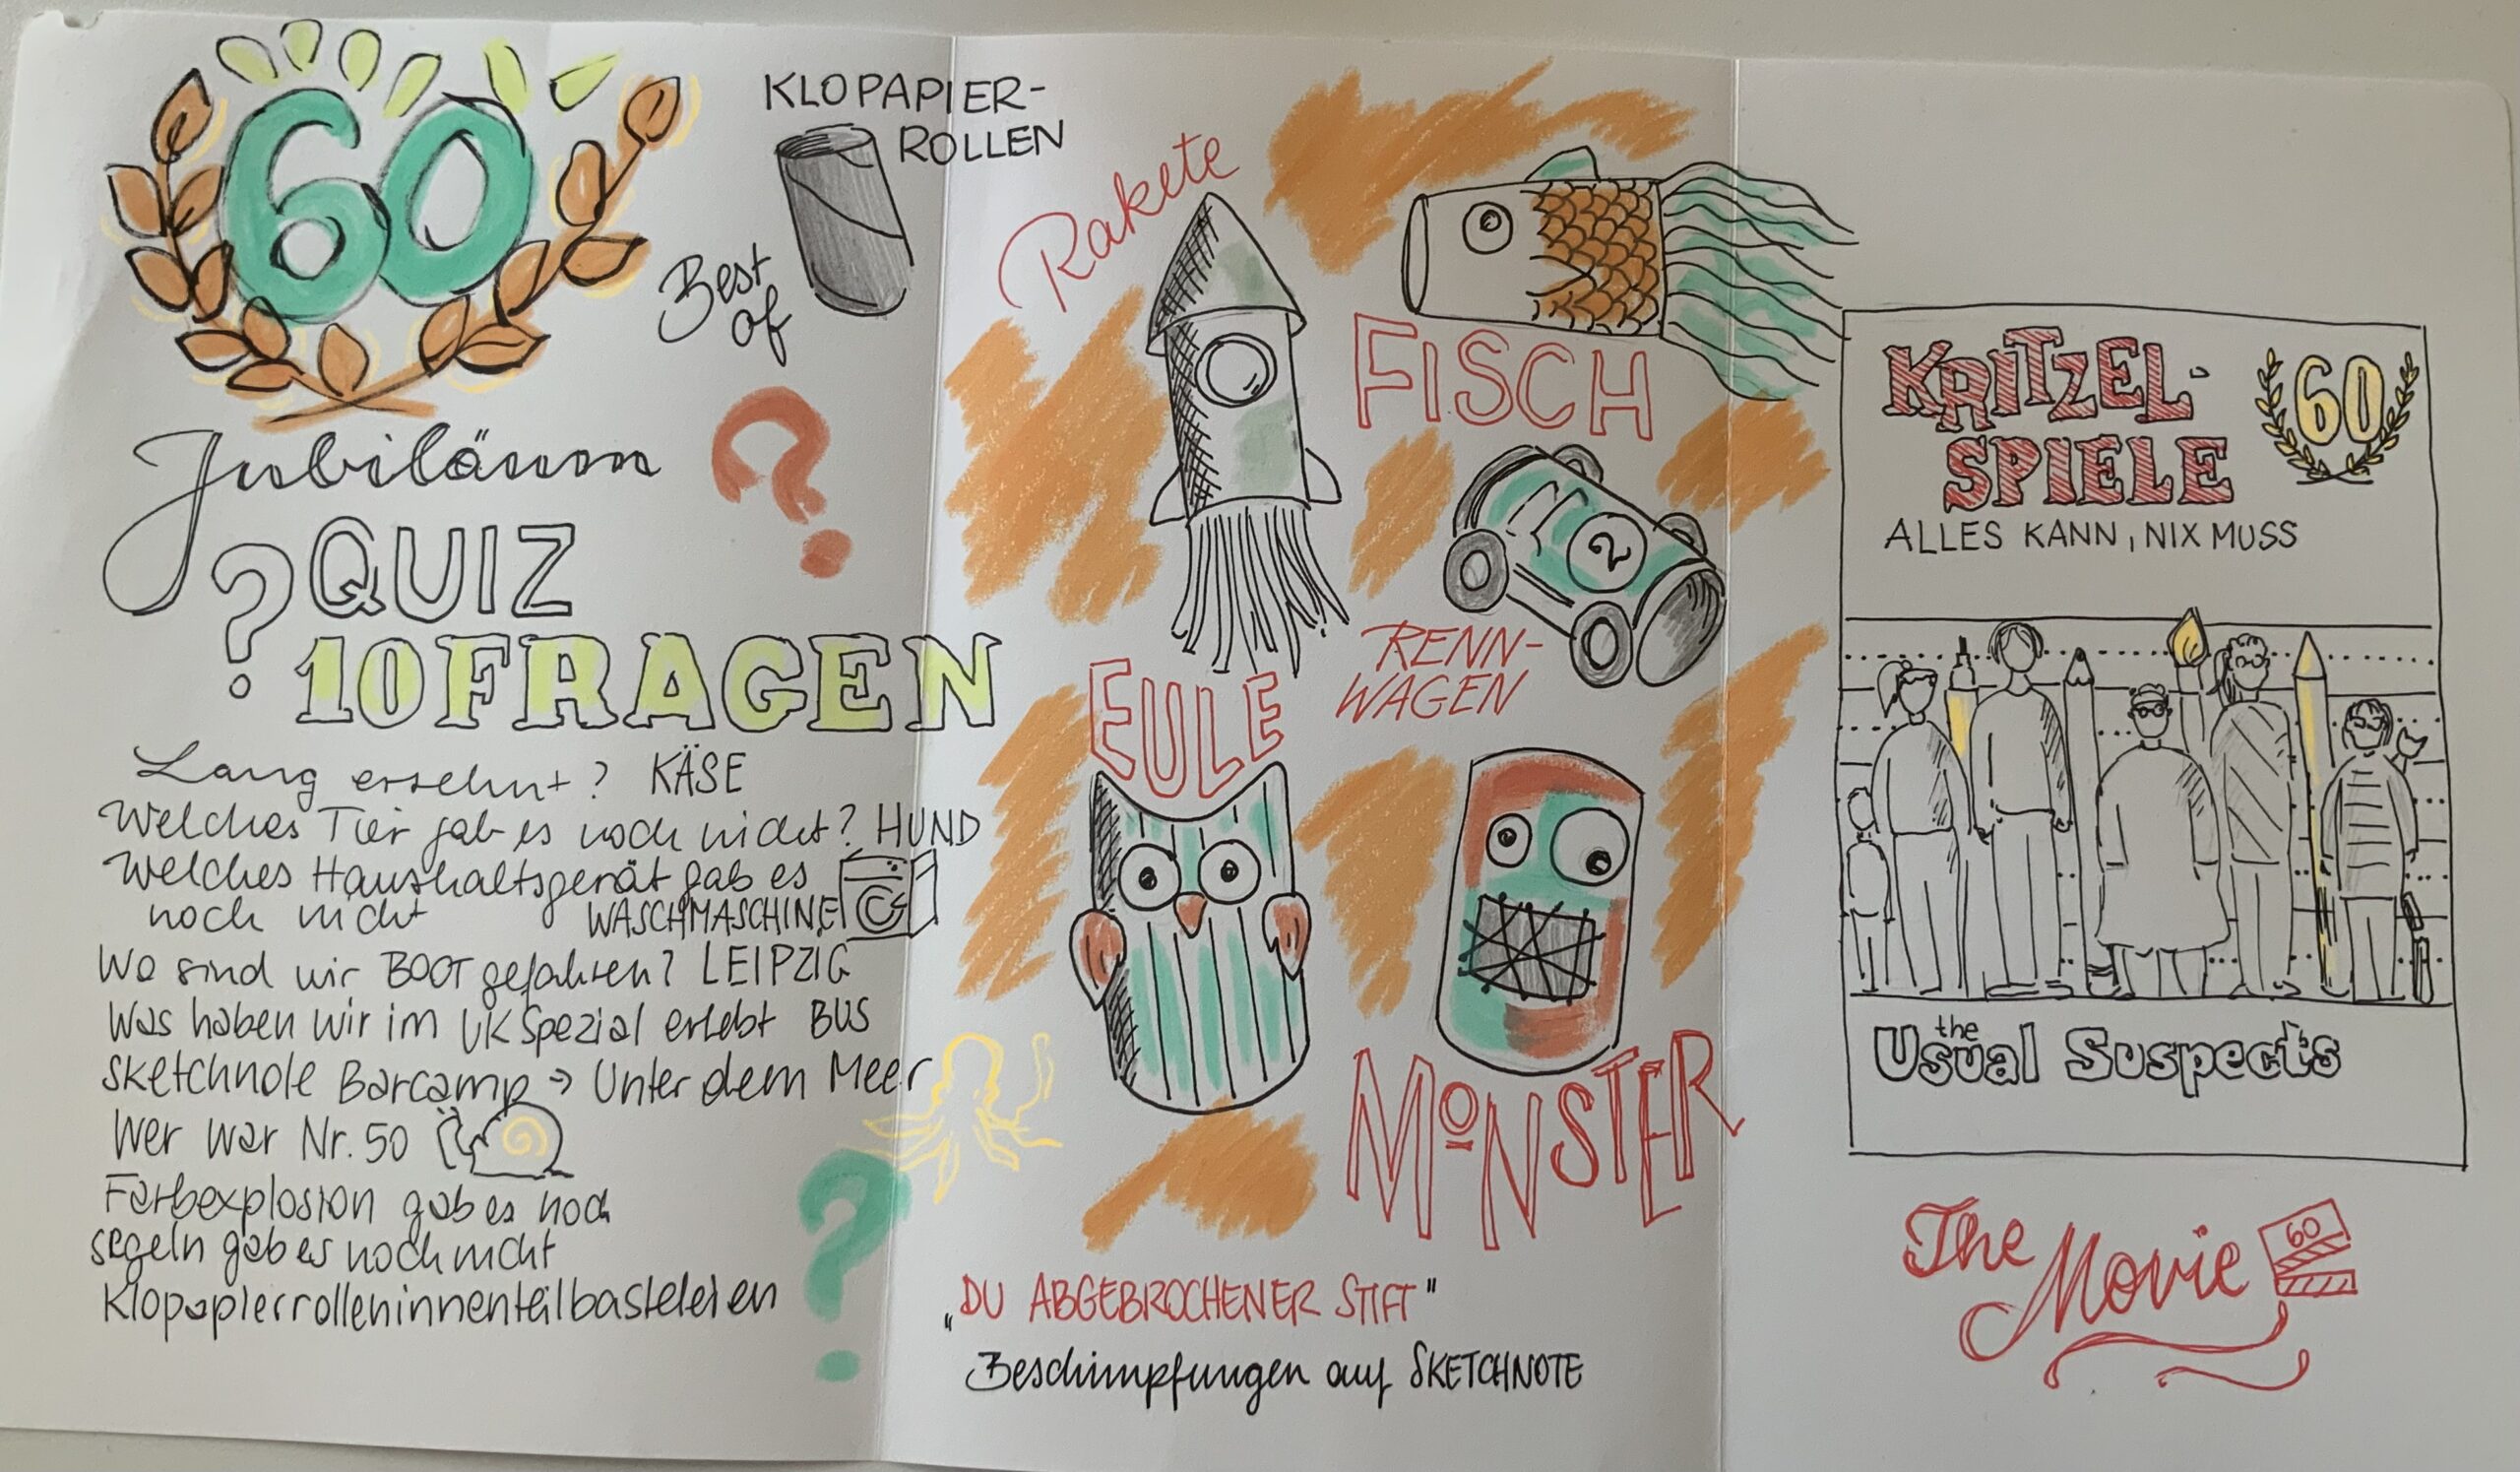 60
Jubiläum
QUIZ
?
10 FRAGEN
Lang ersehnt? KÄSE
Welches Tier gab es noch nicht? HUND
Welches Haushaltsgerät gab es
noch nicht WASCHMASCHINE
Wo sind wir BOOT gefahren? LEIPZIG
Was haben wir im UK Spezial erlebt BUS
Sketchnote Barcamp → Unter dem Meer
Wer war Nr. 50
Farbexplosion gab es noch
segeln gab es noch nicht
Klopapierrolleninnenteilbasteleien
?
?
KLOPAPIER-
ROLLEN
Best
of
Rakete
FISCH
2
RENN-
WAGEN
EULE
MONSTER
„DU ABGEBROCHENER STIFT"
Beschimpfungen auf SKETCHNOTE
KRITZEL-
SPIELE
60
ALLES KANN, NIX MUSS
the
Usual Suspects
The
Movie
60